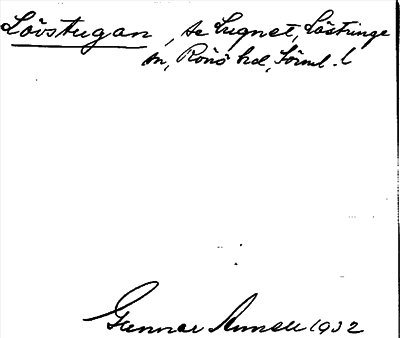 Lövstugan, se Lugnet, Lästringe
sn, Rönö hd, Södml. l
Gunnar Amnell 1932